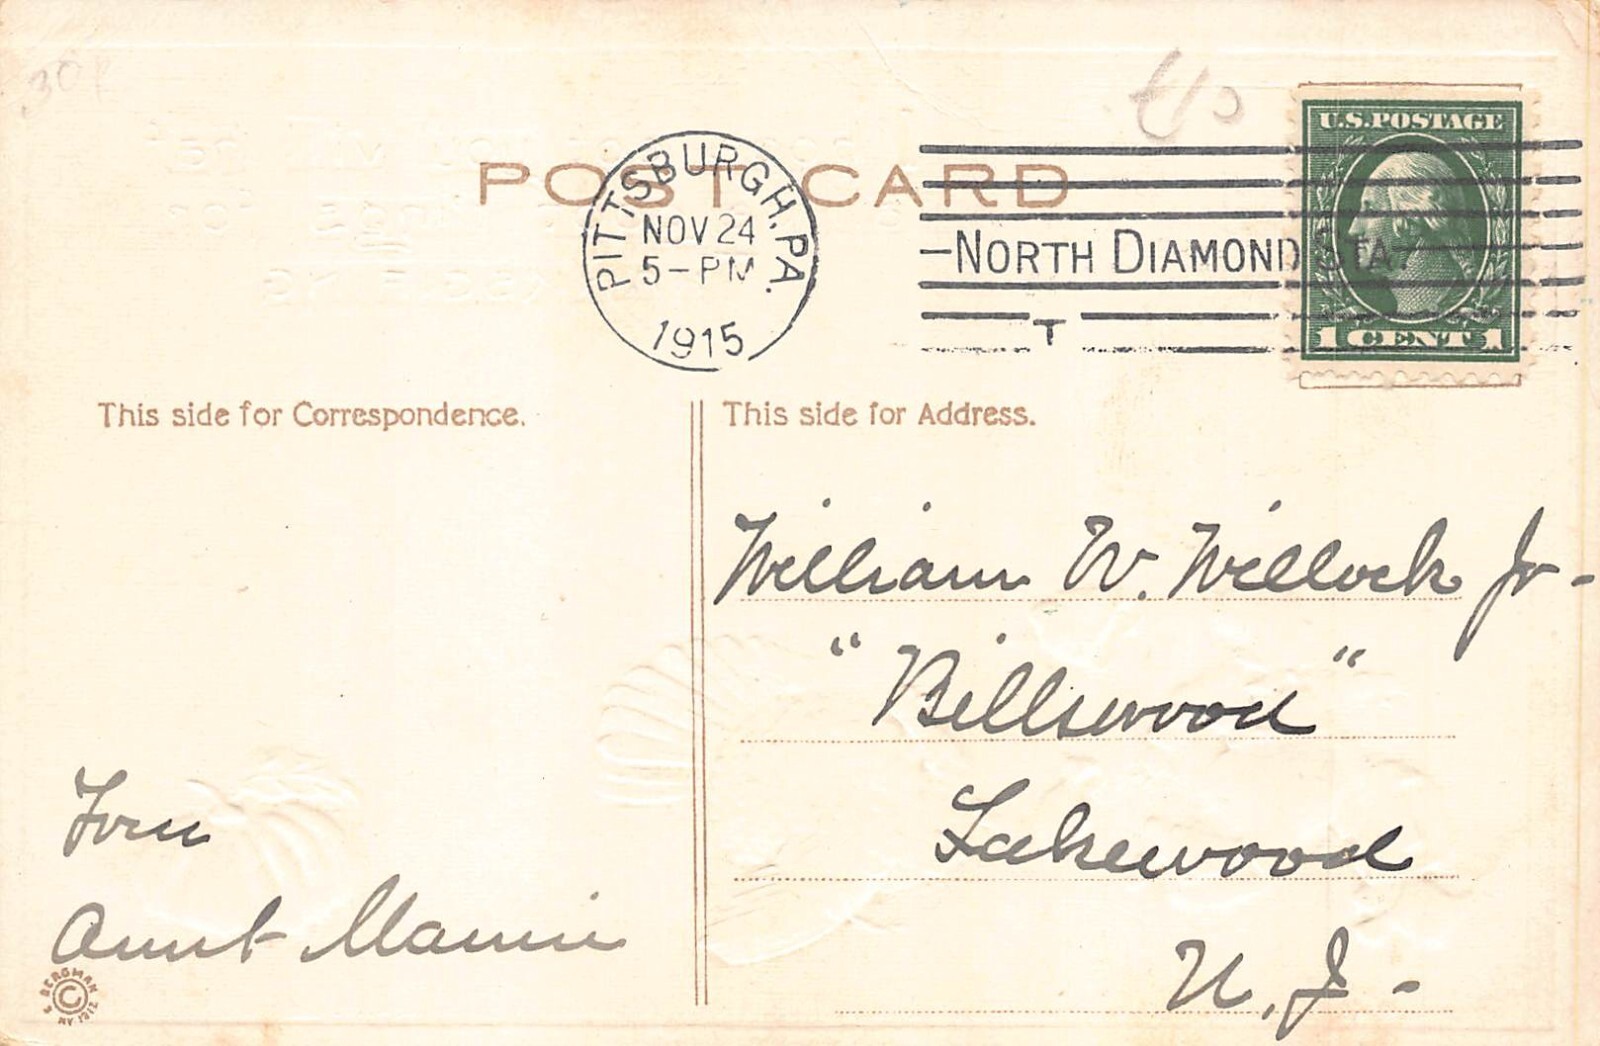 30
POST CARD
PITTSBURGH, PA.
NOV 24
5-PM
1915
NORTH DIAMOND STA.
T
U.S. POSTAGE
1 CENT 1
This side for Correspondence.
This side for Address.
William W. Willock Jr-
"Billswood"
Lakewood
N. J-
From
Aunt Mamie
© BERGMAN
1913